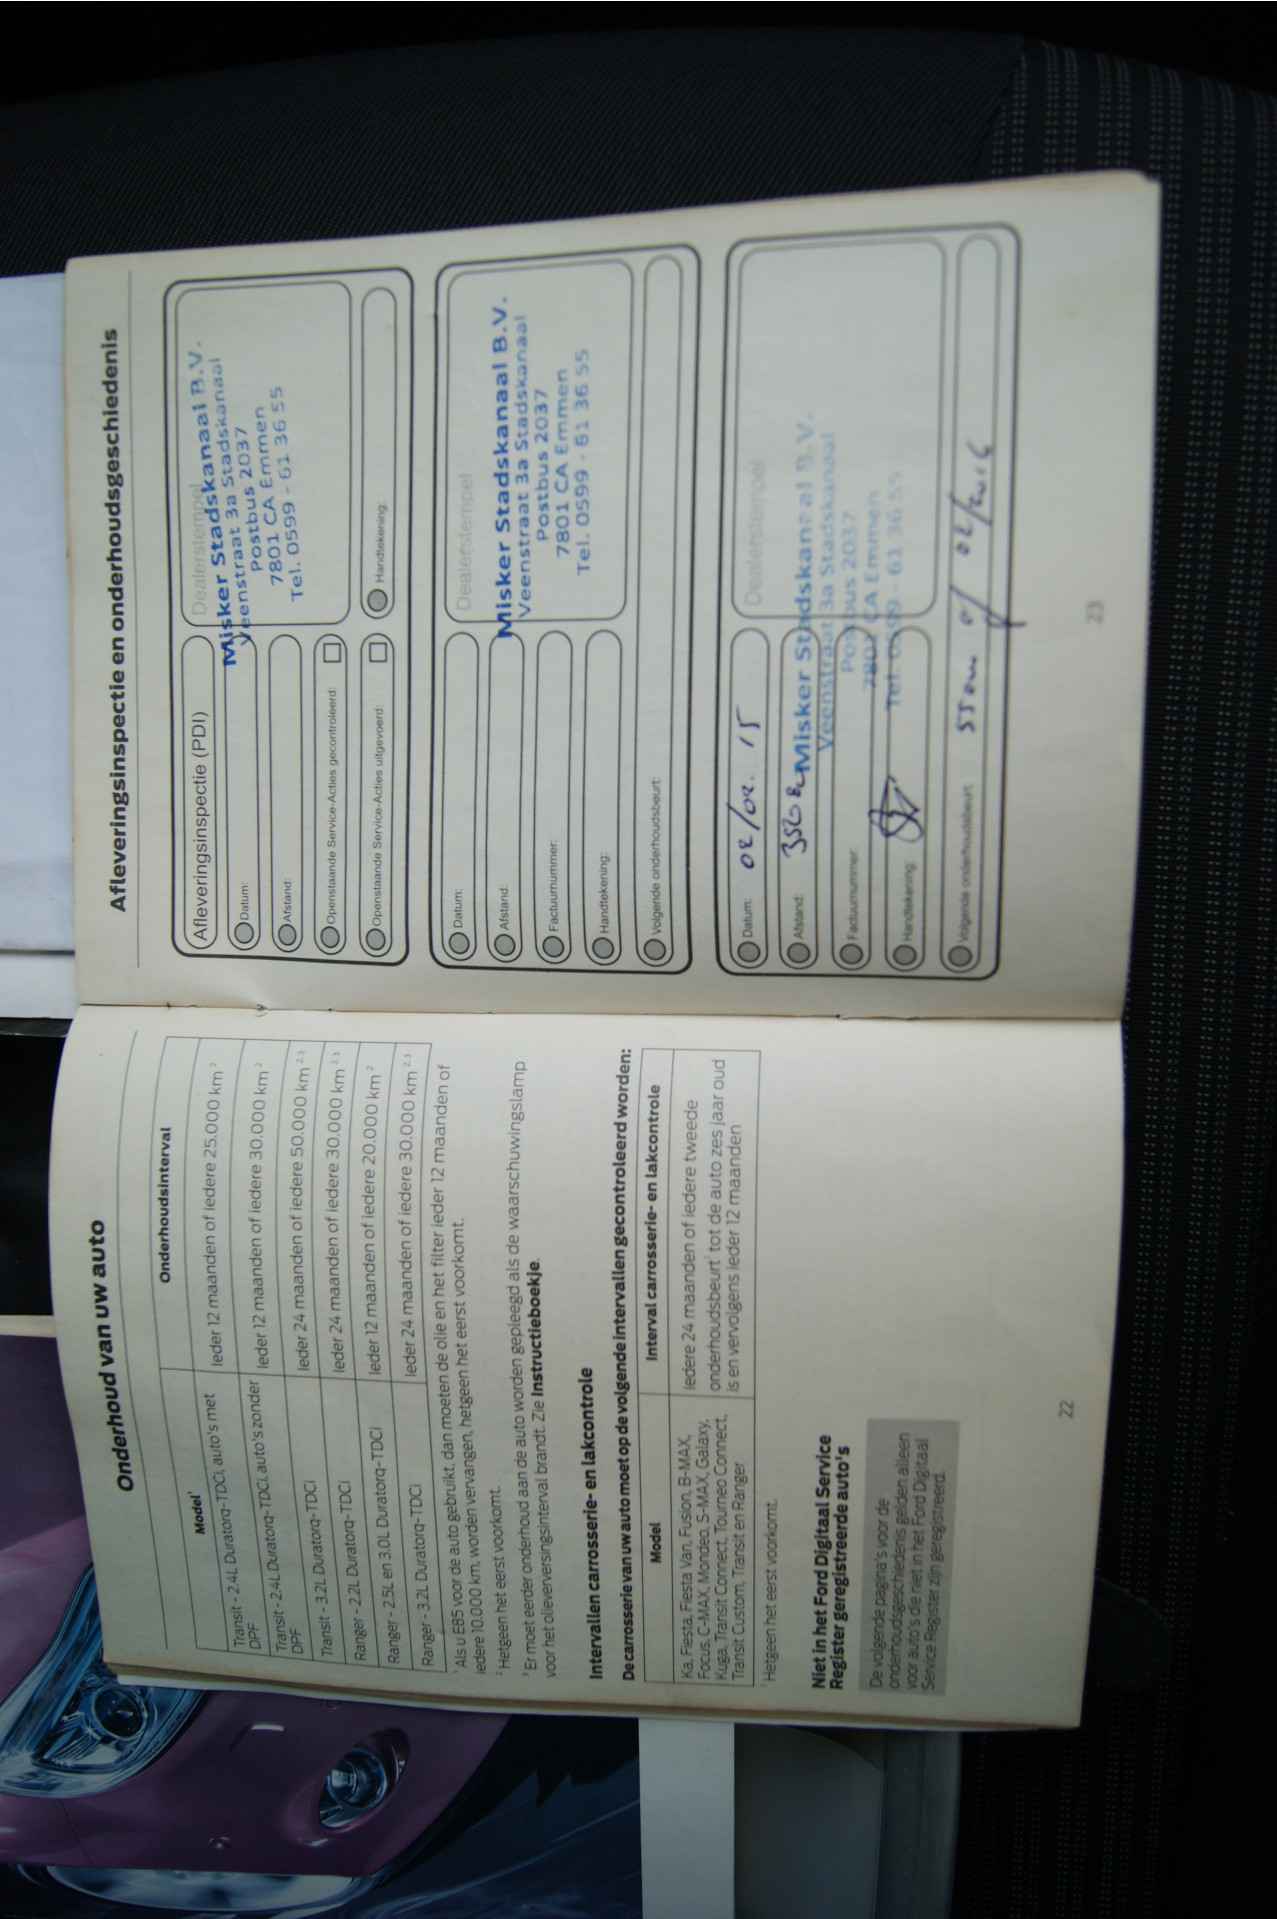 Onderhoud van uw auto
Model¹ Onderhoudsinterval
Transit - 2.4L Duratorq-TDCi, auto's met DPF Ieder 12 maanden of iedere 25.000 km ²
Transit - 2.4L Duratorq-TDCi, auto's zonder DPF Ieder 12 maanden of iedere 30.000 km ²
Transit - 3.2L Duratorq-TDCi Ieder 24 maanden of iedere 50.000 km ²·³
Ranger - 2.2L Duratorq-TDCi Ieder 24 maanden of iedere 30.000 km ²·³
Ranger - 2.5L en 3.0L Duratorq-TDCi Ieder 12 maanden of iedere 20.000 km ²
Ranger - 3.2L Duratorq-TDCi Ieder 24 maanden of iedere 30.000 km ²·³
¹ Als u E85 voor de auto gebruikt, dan moeten de olie en het filter ieder 12 maanden of
iedere 10.000 km, worden vervangen, hetgeen het eerst voorkomt.
² Hetgeen het eerst voorkomt.
³ Er moet eerder onderhoud aan de auto worden gepleegd als de waarschuwingslamp
voor het olieverversingsinterval brandt. Zie Instructieboekje.
Intervallen carrosserie- en lakcontrole
De carrosserie van uw auto moet op de volgende intervallen gecontroleerd worden:
Model Interval carrosserie- en lakcontrole
Ka, Fiesta, Fiesta Van, Fusion, B-MAX, Iedere 24 maanden of iedere tweede
Focus, C-MAX, Mondeo, S-MAX, Galaxy, onderhoudsbeurt¹ tot de auto zes jaar oud
Kuga, Transit Connect, Tourneo Connect, is en vervolgens ieder 12 maanden
Transit Custom, Transit en Ranger
¹ Hetgeen het eerst voorkomt.
Niet in het Ford Digitaal Service
Register geregistreerde auto's
De volgende pagina's voor de
onderhoudsgeschiedenis gelden alleen
voor auto's die niet in het Ford Digitaal
Service Register zijn geregistreerd.
22
Afleveringsinspectie en onderhoudsgeschiedenis
Afleveringsinspectie (PDI)
Dealerstempel
Datum:
Afstand:
Openstaande Service-Acties gecontroleerd:
Openstaande Service-Acties uitgevoerd:
Handtekening:
Misker Stadskanaal B.V.
Veenstraat 3a Stadskanaal
Postbus 2037
7801 CA Emmen
Tel. 0599 - 61 36 55
Dealerstempel
Datum:
Afstand:
Factuurnummer:
Handtekening:
Volgende onderhoudsbeurt:
Misker Stadskanaal B.V.
Veenstraat 3a Stadskanaal
Postbus 2037
7801 CA Emmen
Tel. 0599 - 61 36 55
Dealerstempel
Datum: 02/02. 15
Afstand:
Factuurnummer:
Handtekening:
Volgende onderhoudsbeurt: of 02/2016
Misker Stadskanaal B.V.
Veenstraat 3a Stadskanaal
Postbus 2037
7801 CA Emmen
Tel. 0599 - 61 36 55
23